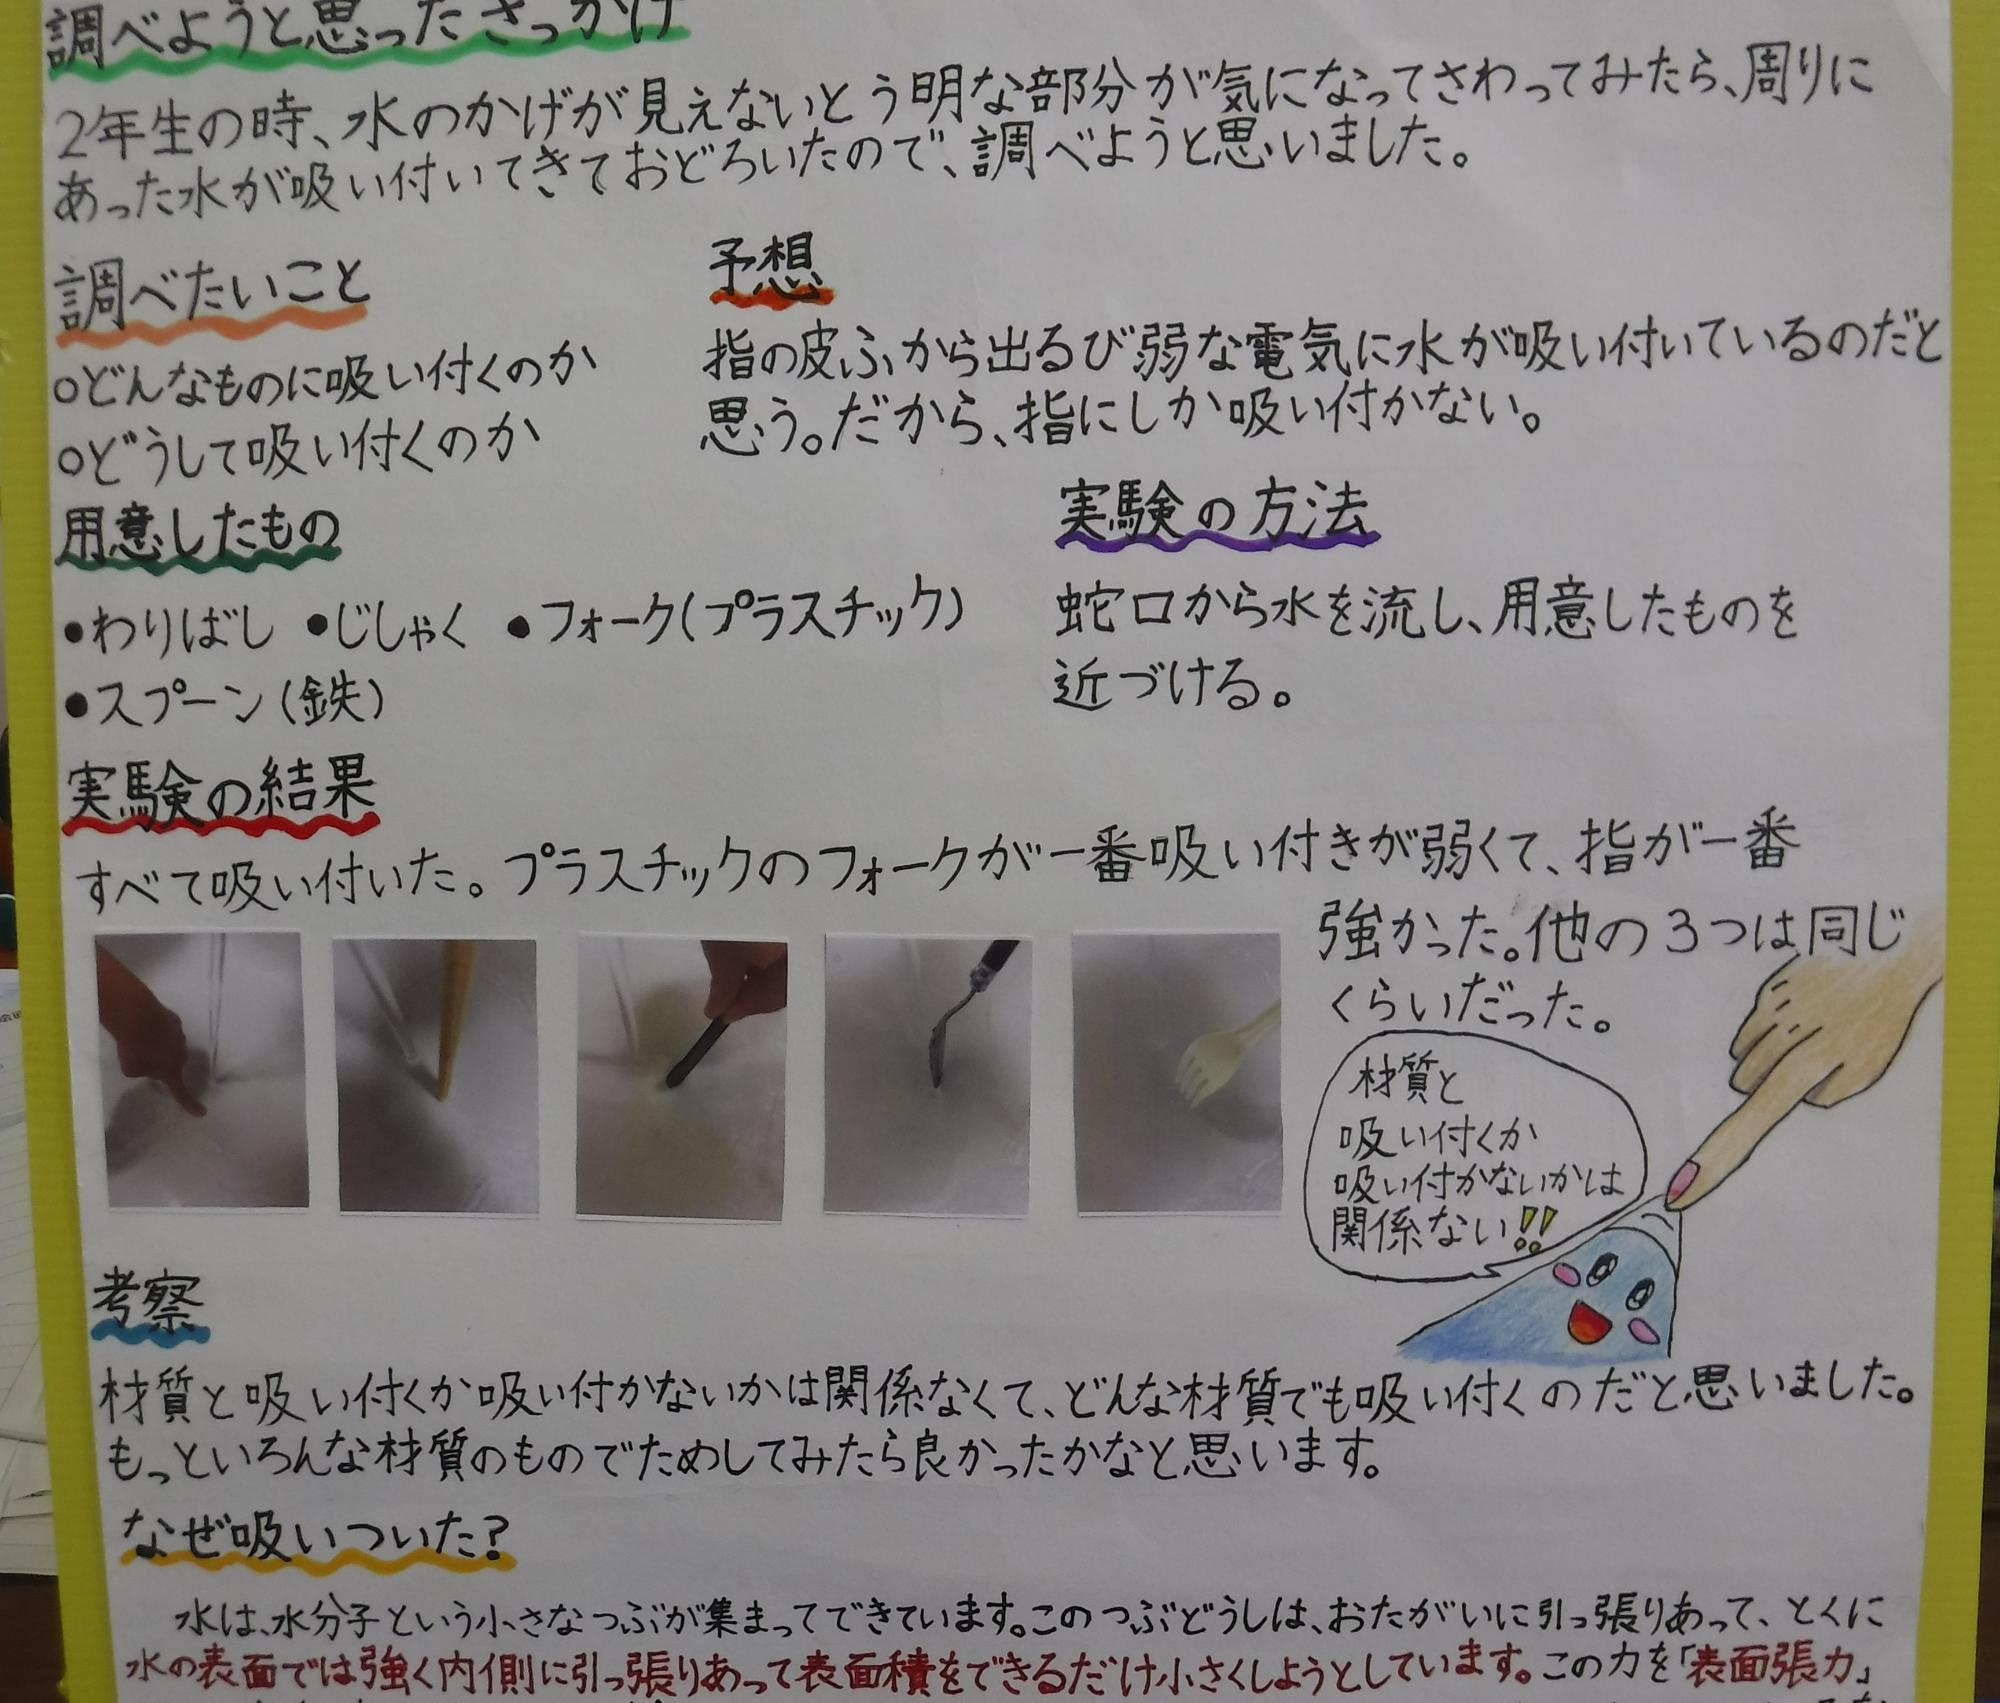 調べようと思ったきっかけ
2年生の時、水のかげが見えないとう明な部分が気になってさわってみたら、周りに
あった水が吸い付いてきておどろいたので、調べようと思いました。
調べたいこと
○どんなものに吸い付くのか
○どうして吸い付くのか
予想
指の皮ふから出るび弱な電気に水が吸い付いているのだと
思う。だから、指にしか吸い付かない。
用意したもの
•わりばし •じしゃく •フォーク(プラスチック)
•スプーン(鉄)
実験の方法
蛇口から水を流し、用意したものを
近づける。
実験の結果
すべて吸い付いた。プラスチックのフォークが一番吸い付きが弱くて、指が一番
強かった。他の3つは同じ
くらいだった。
材質と
吸い付くか
吸い付かないかは
関係ない!!
考察
材質と吸い付くか吸い付かないかは関係なくて、どんな材質でも吸い付くのだと思いました。
もっといろんな材質のものでためしてみたら良かったかなと思います。
なぜ吸いついた?
水は、水分子という小さなつぶが集まってできています。このつぶどうしは、おたがいに引っ張りあって、とくに
水の表面では強く内側に引っ張りあって表面積をできるだけ小さくしようとしています。この力を「表面張力」